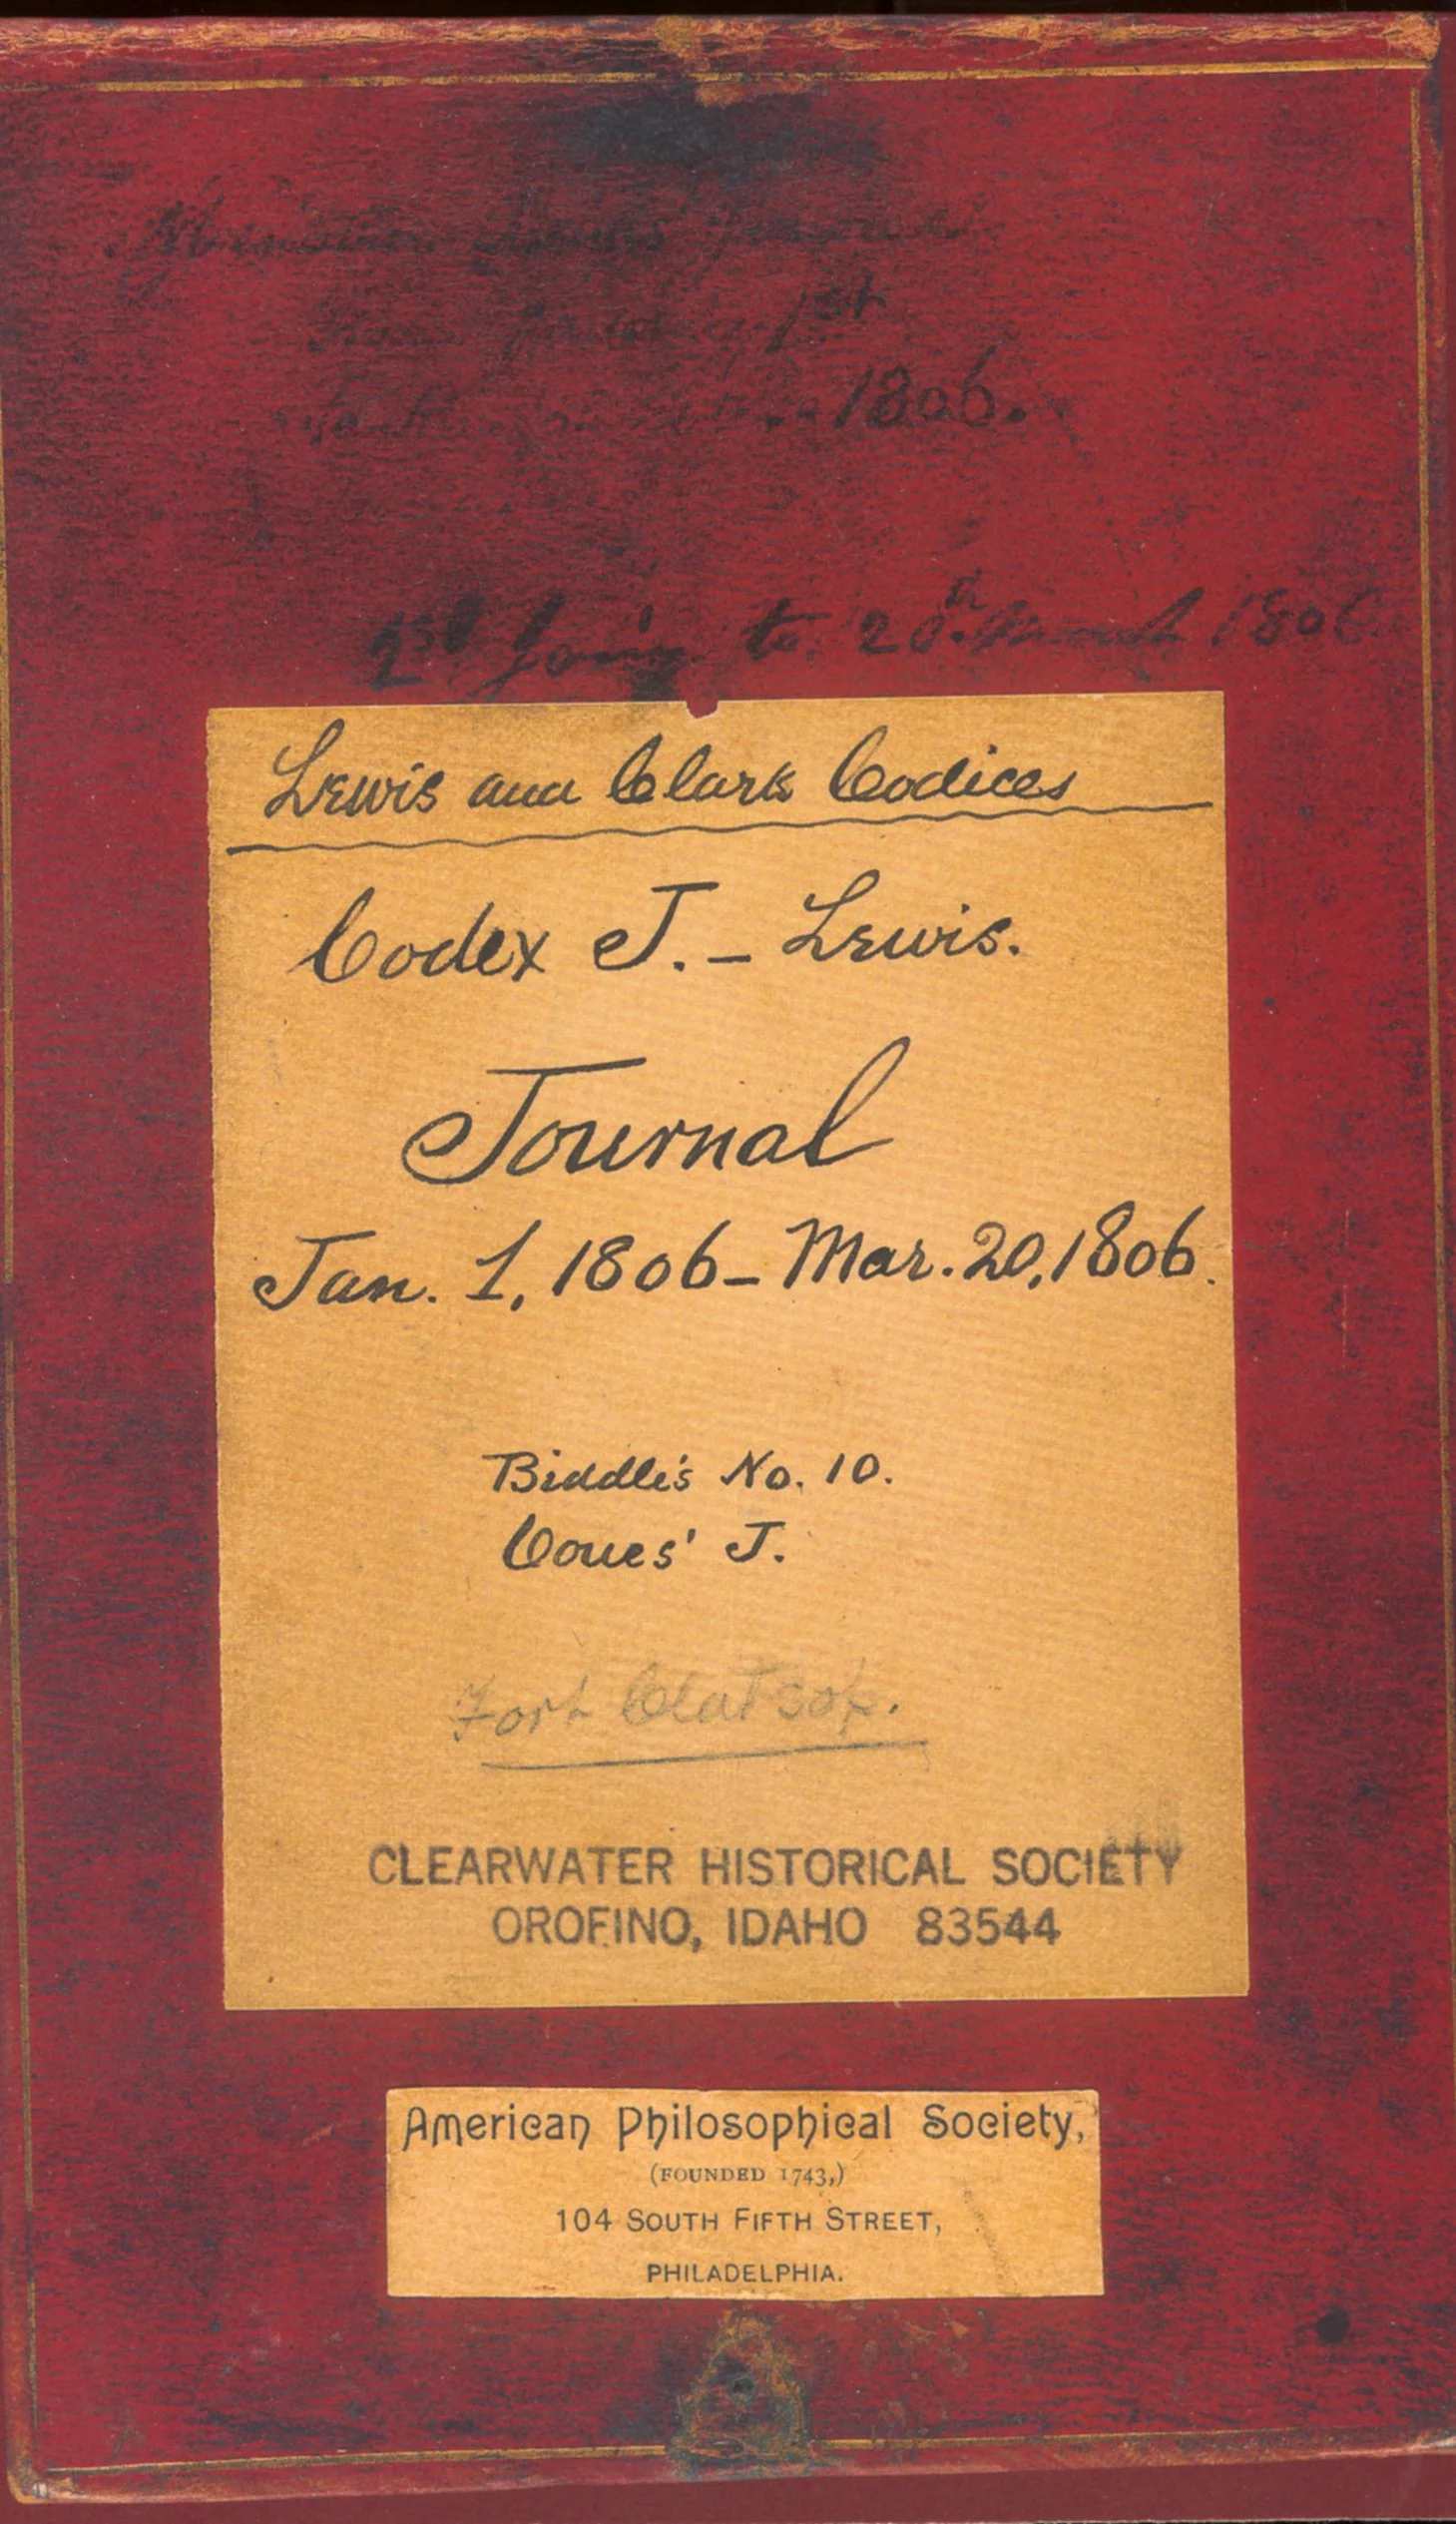 1st
1806.
1st Jany to 20th March 1806
Lewis and Clark Codices
Codex J. – Lewis.
Journal
Jan. 1, 1806 – Mar. 20, 1806.
Biddle's No. 10.
Coues' J.
Fort Clatsop.
CLEARWATER HISTORICAL SOCIETY
OROFINO, IDAHO 83544
American Philosophical Society,
(FOUNDED 1743,)
104 SOUTH FIFTH STREET,
PHILADELPHIA.